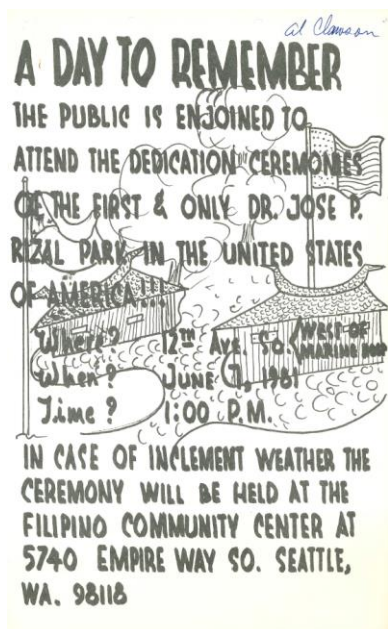 al Clawson
A DAY TO REMEMBER
THE PUBLIC IS ENJOINED TO
ATTEND THE DEDICATION CEREMONIES
OF THE FIRST & ONLY DR. JOSE P.
RIZAL PARK IN THE UNITED STATES
OF AMERICA!!!
Where? 12TH AVE. So. (WEST OF
MARINE HOSP
When? JUNE 7, 1981
Time? 1:00 P.M.
IN CASE OF INCLEMENT WEATHER THE
CEREMONY WILL BE HELD AT THE
FILIPINO COMMUNITY CENTER AT
5740 EMPIRE WAY SO. SEATTLE,
WA. 98118